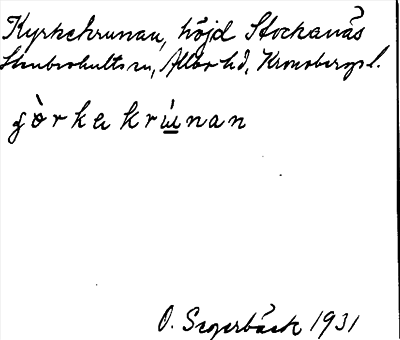 Kyrkekrunan, höjd Stockanäs
Stenbrohults sn, Allbo hd, Kronobergs l.
gò̀rka krùnan
O. Segerbäck 1931